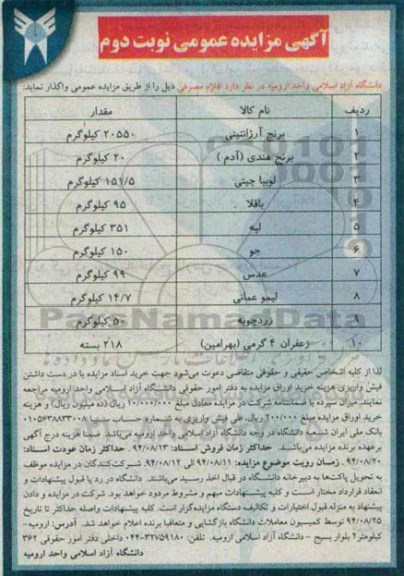 آگهی مزایده عمومی نوبت دوم
دانشگاه آزاد اسلامی واحد ارومیه در نظر دارد اقلام مصرفی ذیل را از طریق مزایده عمومی واگذار نماید:
ردیف نام کالا مقدار
۱ برنج آرژانتینی ۲۰۵۵۰ کیلوگرم
۲ برنج هندی (آدم) ۲۰ کیلوگرم
۳ لوبیا چیتی ۱۵۱/۵ کیلوگرم
۴ باقلا ۹۵ کیلوگرم
۵ لپه ۳۵۱ کیلوگرم
۶ جو ۱۵۰ کیلوگرم
۷ عدس ۹۹ کیلوگرم
۸ لیمو عمانی ۱۴/۷ کیلوگرم
۹ زردچوبه ۵۰ کیلوگرم
۱۰ زعفران ۴ گرمی (بهرامین) ۲۱۸ بسته
لذا از کلیه اشخاص حقیقی و حقوقی متقاضی دعوت می‌شود جهت خرید اسناد مزایده با در دست داشتن
فیش واریزی هزینه خرید اوراق مزایده به دفتر امور حقوقی دانشگاه آزاد اسلامی واحد ارومیه مراجعه
نمایند. میزان سپرده یا ضمانتنامه شرکت در مزایده معادل مبلغ ۱۰/۰۰۰/۰۰۰ ریال (ده میلیون ریال) و هزینه
خرید اوراق مزایده مبلغ ۲۰۰/۰۰۰ ریال، طی فیش واریزی به شماره حساب سپرده ۰۱۰۵۶۳۸۸۳۳۰۰۱
بانک ملی ایران شعبه دانشگاه در وجه دانشگاه آزاد اسلامی واحد ارومیه می‌باشد. ضمنا هزینه درج آگهی
برعهده برنده مزایده می‌باشد. حداکثر زمان فروش اسناد: ۹۴/۰۸/۱۳. حداکثر زمان عودت اسناد:
۹۴/۰۸/۲۰. زمان رویت موضوع مزایده: ۹۴/۰۸/۱۱ الی ۹۴/۰۸/۱۲. شرکت‌کنندگان در مزایده موظف
به تحویل پاکت‌ها به دبیرخانه دانشگاه در قبال اخذ رسید می‌باشند. دانشگاه در رد یا قبول پیشنهادات و
انعقاد قرارداد مختار است و کلیه پیشنهادات مبهم و مشروط مردود خواهد بود. شرکت در مزایده و دادن
پیشنهاد به منزله قبول اختیارات و تکالیف دستگاه مزایده‌گزار است. کلیه پیشنهادات واصله حداکثر تا تاریخ
۹۴/۰۸/۲۵ توسط کمیسیون معاملات دانشگاه بازگشایی و متعاقبا برنده اعلام خواهد شد. آدرس: ارومیه-
کیلومتر ۲ بلوار بسیج- دانشگاه آزاد اسلامی ارومیه. تلفن: ۳۲۷۵۹۱۸۰-۰۴۴ داخلی دفتر امور حقوقی ۳۶۲
دانشگاه آزاد اسلامی واحد ارومیه